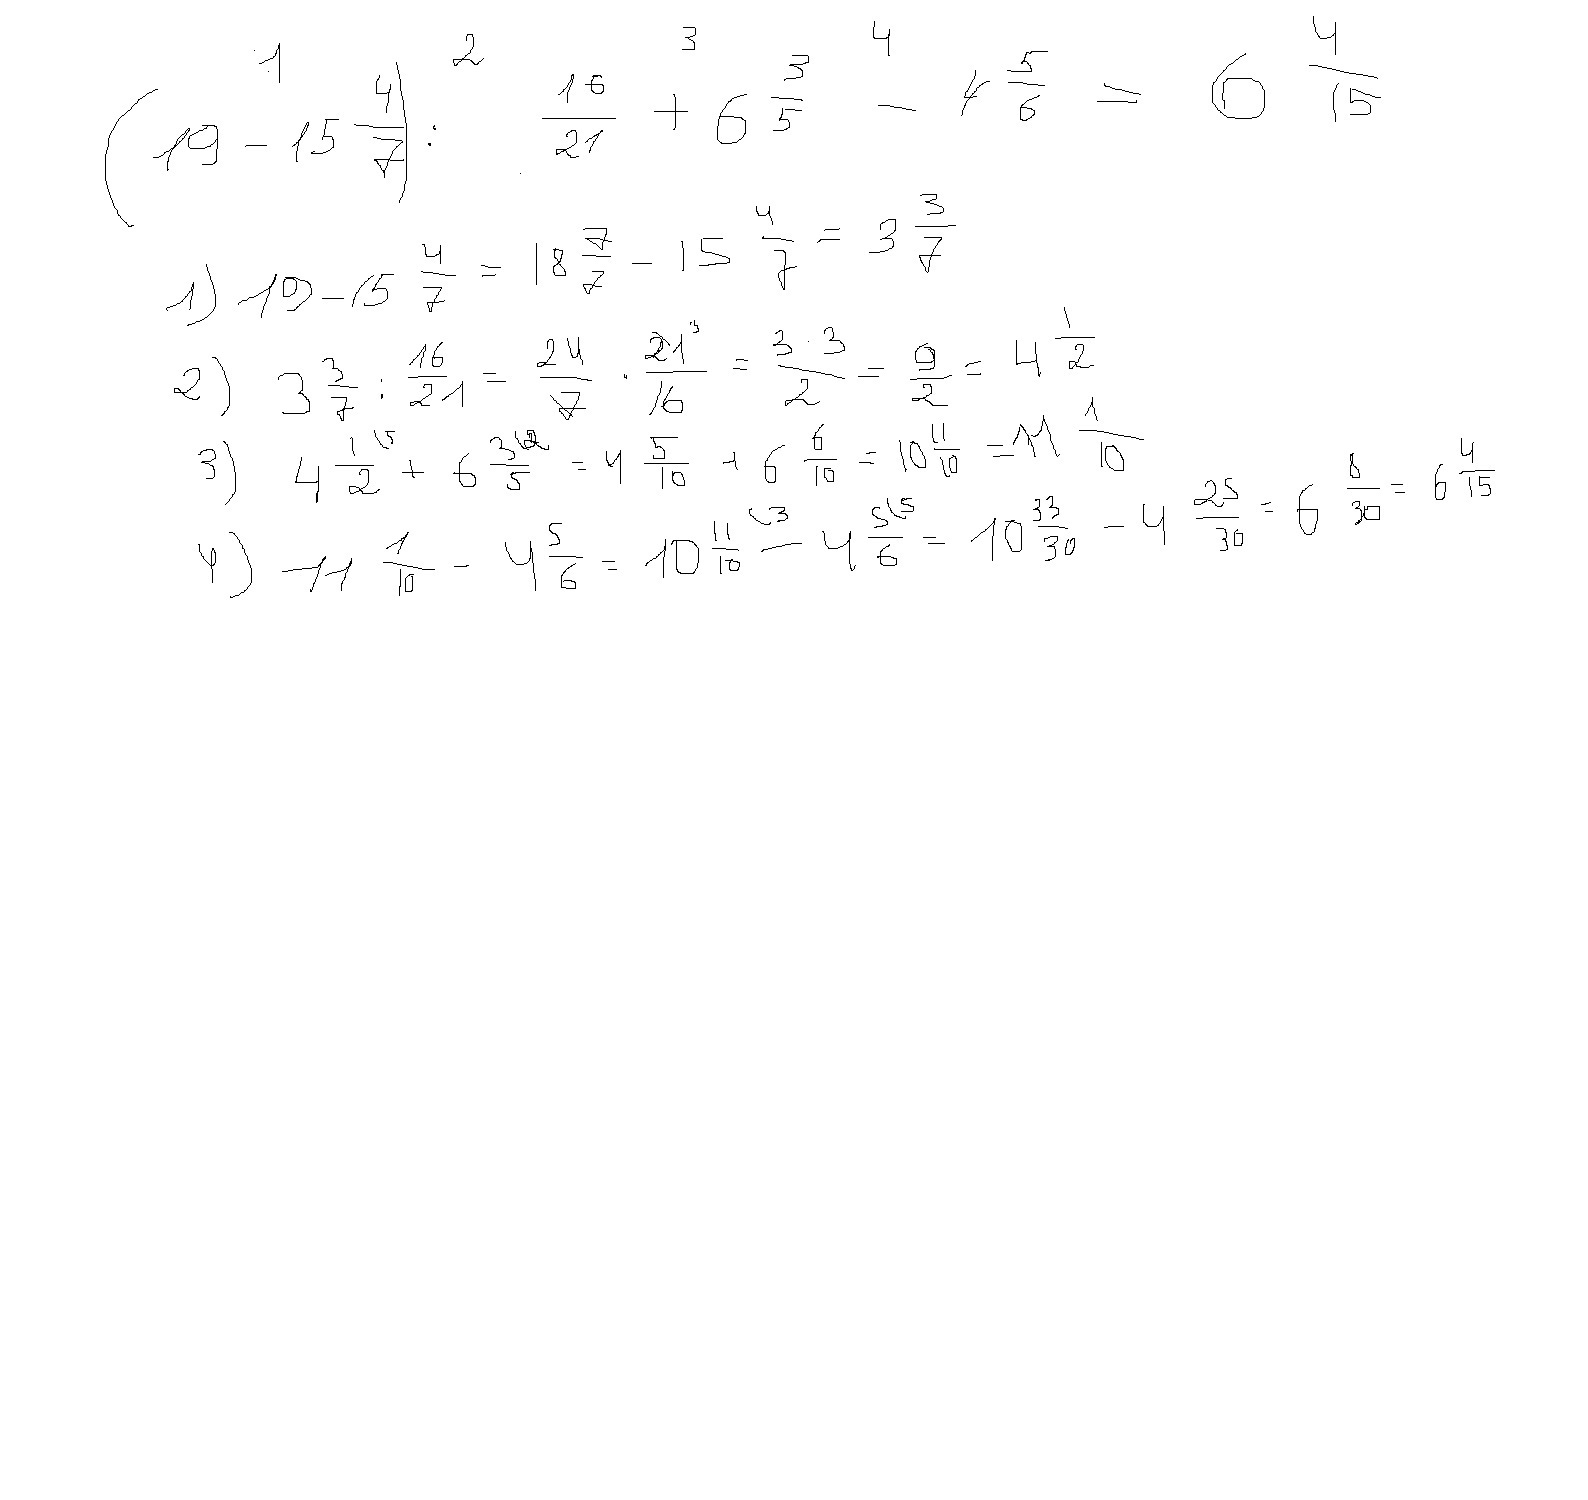 1 2 3 4
(19 - 15 4/7) : 16/21 + 6 3/5 - 4 5/6 = 6 4/15
1) 19 - 15 4/7 = 18 7/7 - 15 4/7 = 3 3/7
2) 3 3/7 : 16/21 = 24/7 · 21/16 = 3·3/2 = 9/2 = 4 1/2
3) 4 1/2 \5 + 6 3/5 \2 = 4 5/10 + 6 6/10 = 10 11/10 = 11 1/10
4) 11 1/10 - 4 5/6 = 10 11/10 \3 - 4 5/6 \5 = 10 33/30 - 4 25/30 = 6 8/30 = 6 4/15